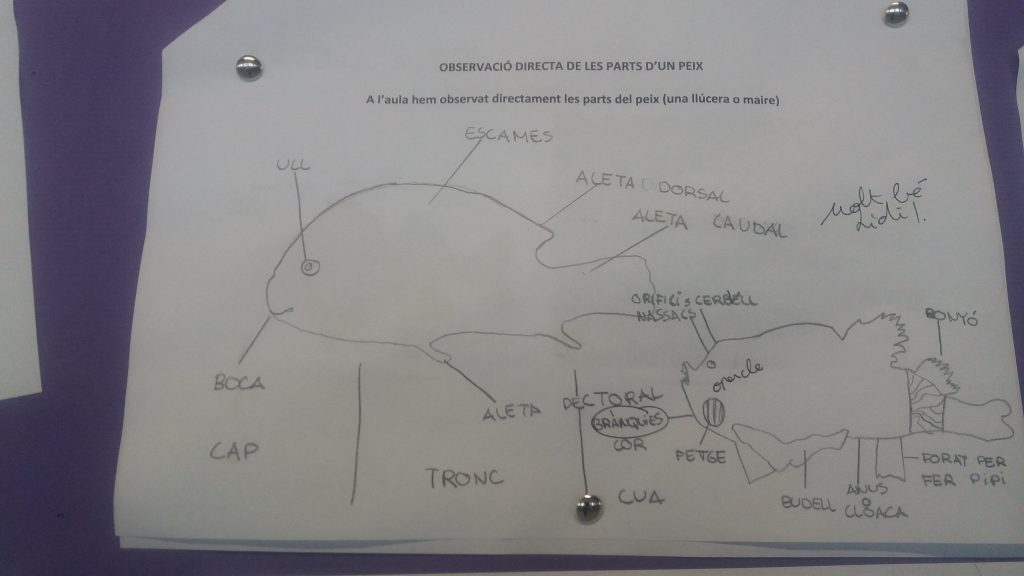 OBSERVACIÓ DIRECTA DE LES PARTS D'UN PEIX
A l'aula hem observat directament les parts del peix (una llúcera o maire)
ESCAMES
ULL
ALETA DORSAL
ALETA CAUDAL
Molt bé
Lidi!
ORIFICIS
NASSACS
CERBELL
RONYÓ
opercle
BOCA
ALETA PECTORAL
BRÀNQUIES
COR
PETGE
CAP
TRONC
CUA
BUDELL
ANUS
O
CLOACA
FORAT PER
FER PIPI